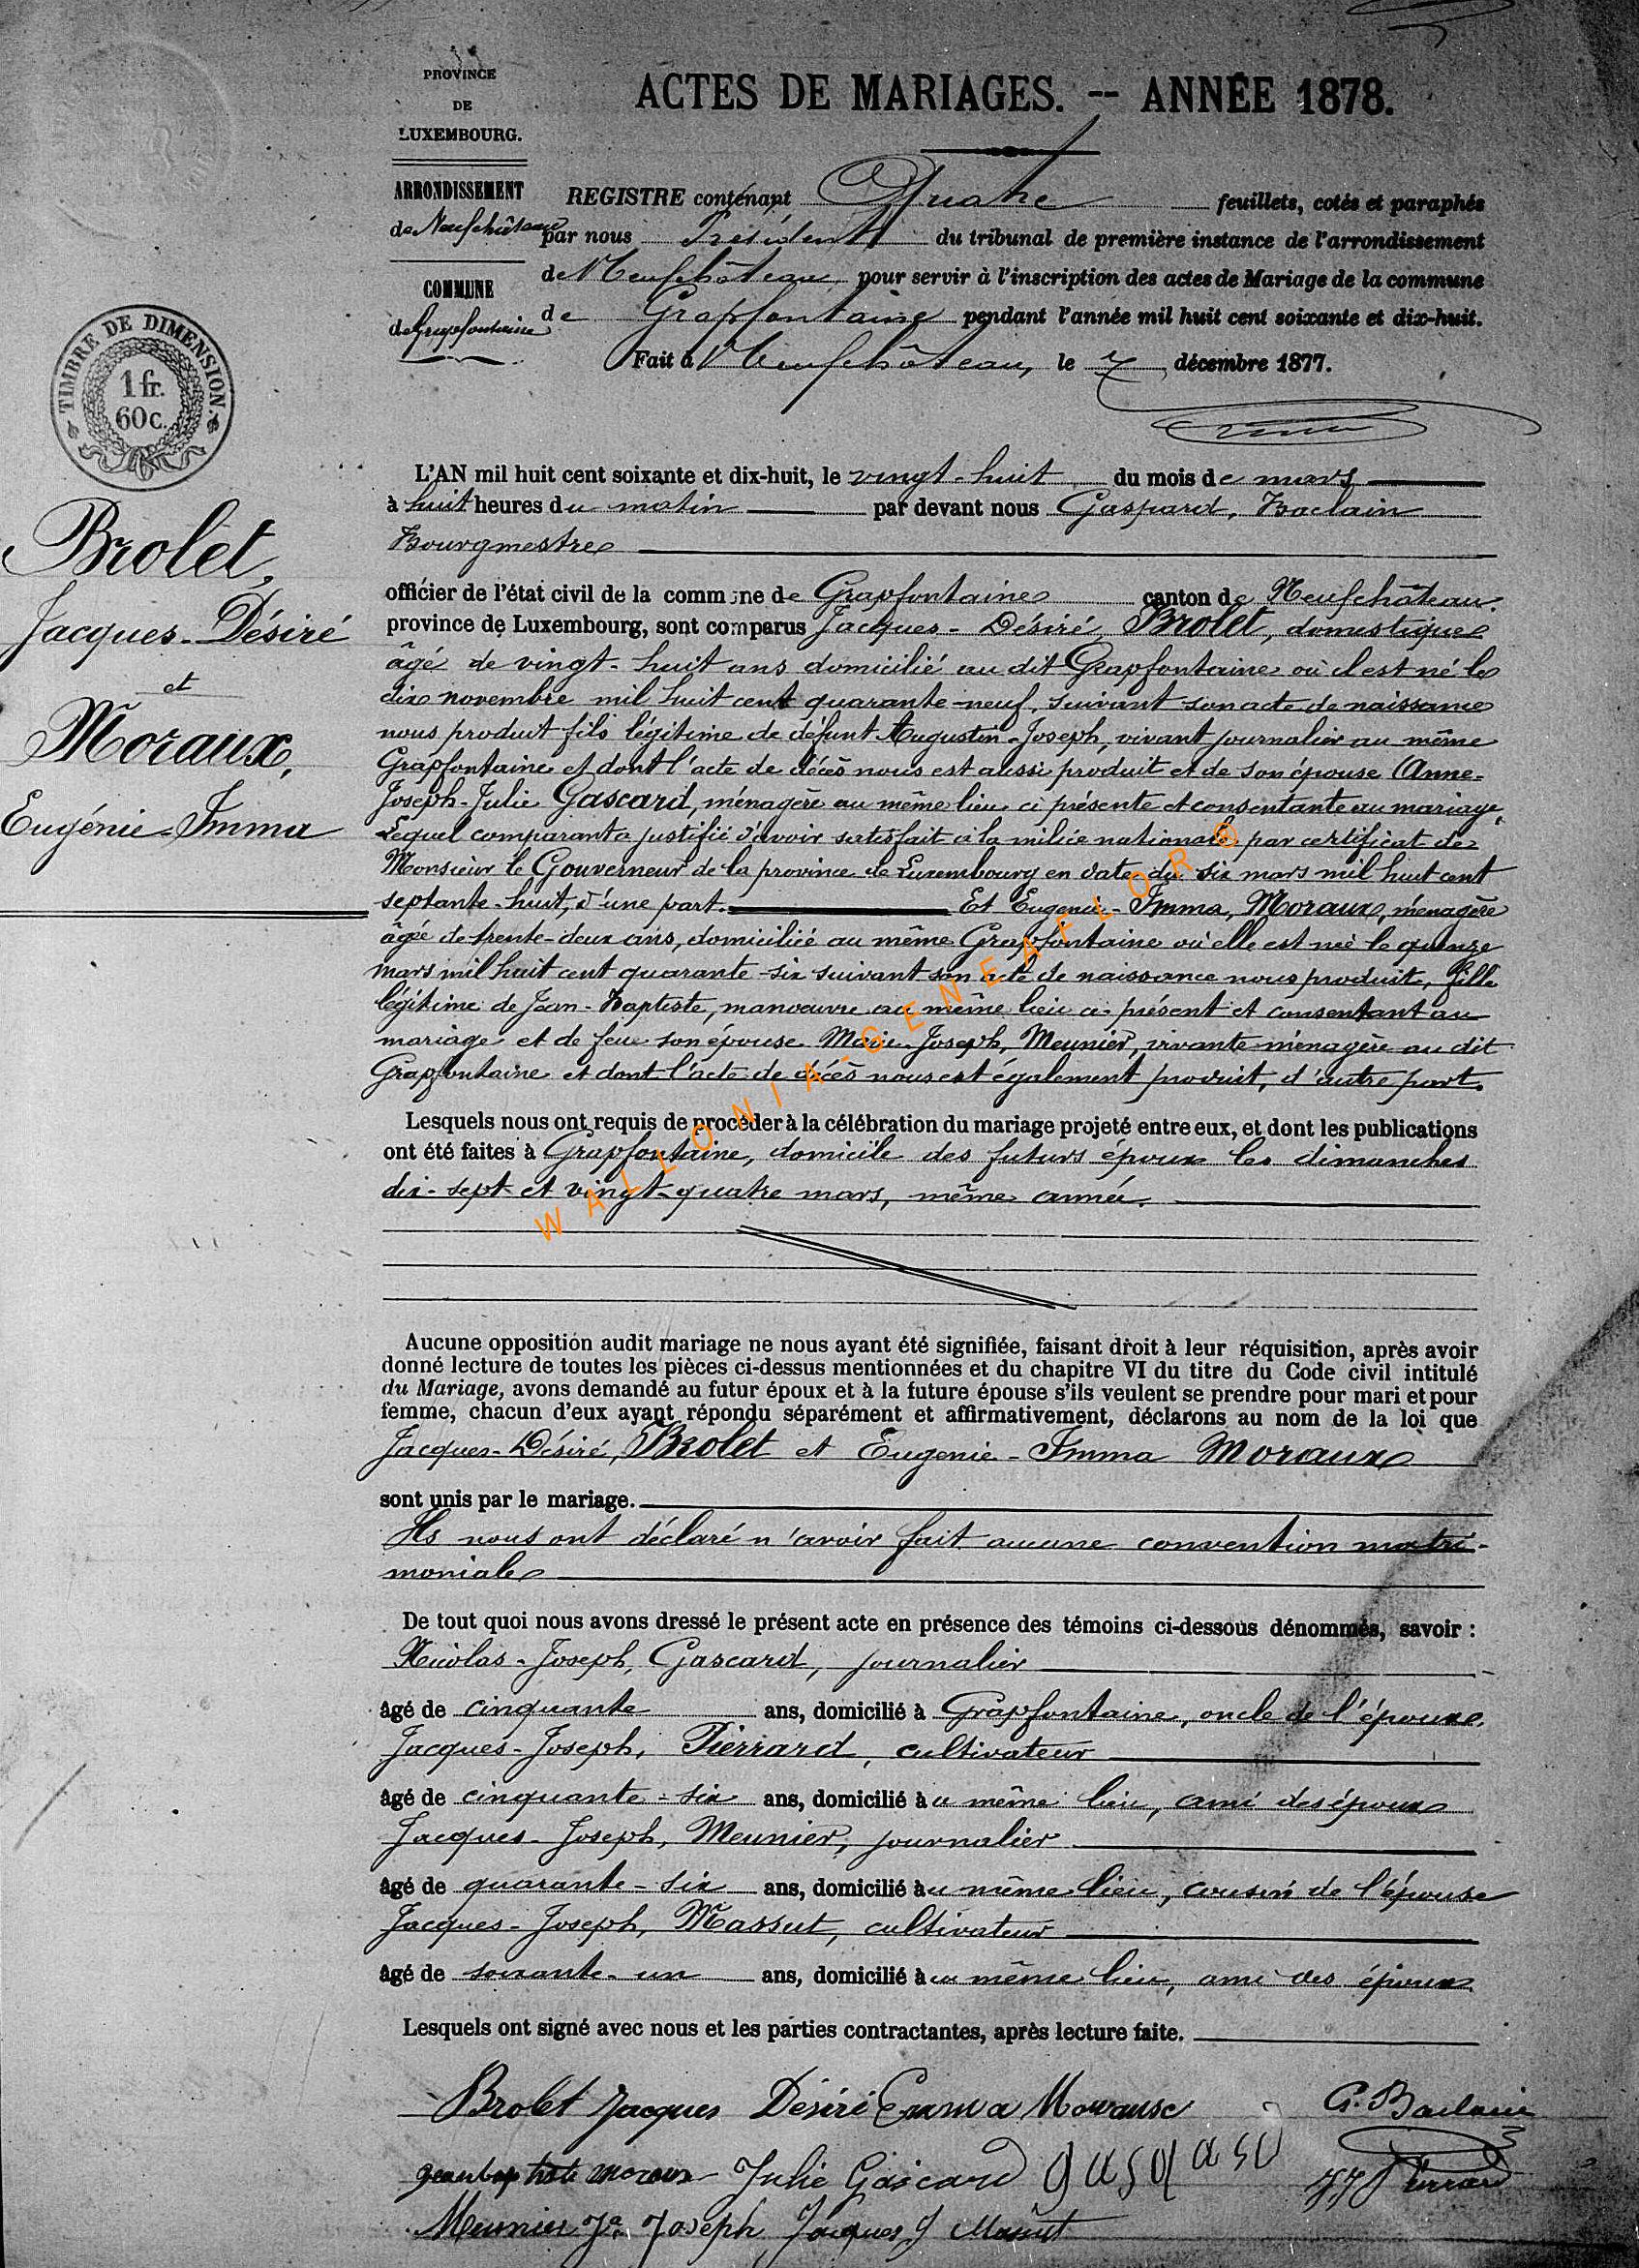 PROVINCE
DE
LUXEMBOURG.
ACTES DE MARIAGES. -- ANNÉE 1878.
ARRONDISSEMENT
de Neufchâteau
COMMUNE
de Grapfontaine
REGISTRE contenant Quatre feuillets, cotés et paraphés
par nous Président du tribunal de première instance de l'arrondissement
de Neufchâteau pour servir à l'inscription des actes de Mariage de la commune
de Grapfontaine pendant l'année mil huit cent soixante et dix-huit.
Fait à Neufchâteau, le 7 décembre 1877.
TIMBRE DE DIMENSION.
1 fr.
60 c.
Brolet,
Jacques-Désiré
et
Moraux,
Eugénie-Imma
L'AN mil huit cent soixante et dix-huit, le vingt-huit du mois de mars
à huit heures du matin par devant nous Gaspard, Baclain
Bourgmestre
officier de l'état civil de la commune de Grapfontaine canton de Neufchâteau.
province de Luxembourg, sont comparus Jacques-Désiré, Brolet, domestique
âgé de vingt-huit ans domicilié au dit Grapfontaine où il est né le
dix novembre mil huit cent quarante-neuf, suivant son acte de naissance
nous produit fils légitime de défunt Augustin-Joseph, vivant journalier au même
Grapfontaine et dont l'acte de décès nous est aussi produit et de son épouse Anne-
Joseph-Julie Gascard, ménagère au même lieu ci présente et consentante au mariage,
Lequel comparant a justifié d'avoir satisfait à la milice nationale par certificat de
Monsieur le Gouverneur de la province de Luxembourg en date du six mars mil huit cent
septante-huit, d'une part. Et Eugénie-Imma, Moraux, ménagère
âgée de trente-deux ans, domiciliée au même Grapfontaine où elle est née le quinze
mars mil huit cent quarante-six suivant son acte de naissance nous produit, fille
légitime de Jean-Baptiste, manoeuvre au même lieu ci présent et consentant au
mariage et de feue son épouse Marie-Joseph, Meunier, vivante ménagère au dit
Grapfontaine et dont l'acte de décès nous est également produit, d'autre part.
WALLONIA-GENEAFLOR ®
Lesquels nous ont requis de procéder à la célébration du mariage projeté entre eux, et dont les publications
ont été faites à Grapfontaine, domicile des futurs époux les dimanches
dix-sept et vingt-quatre mars, même année.
Aucune opposition audit mariage ne nous ayant été signifiée, faisant droit à leur réquisition, après avoir
donné lecture de toutes les pièces ci-dessus mentionnées et du chapitre VI du titre du Code civil intitulé
du Mariage, avons demandé au futur époux et à la future épouse s'ils veulent se prendre pour mari et pour
femme, chacun d'eux ayant répondu séparément et affirmativement, déclarons au nom de la loi que
Jacques-Désiré, Brolet et Eugenie-Imma Moraux
sont unis par le mariage.
Ils nous ont déclaré n'avoir fait aucune convention matri-
moniale
De tout quoi nous avons dressé le présent acte en présence des témoins ci-dessous dénommés, savoir :
Nicolas-Joseph, Gascard, journalier
âgé de cinquante ans, domicilié à Grapfontaine, oncle de l'époux.
Jacques-Joseph, Pierrard, cultivateur
âgé de cinquante-six ans, domicilié au même lieu, ami des époux
Jacques-Joseph, Meunier, journalier
âgé de quarante-six ans, domicilié au même lieu, cousin de l'épouse
Jacques-Joseph, Massut, cultivateur
âgé de soixante-un ans, domicilié au même lieu, ami des époux
Lesquels ont signé avec nous et les parties contractantes, après lecture faite.
Brolet Jacques Désiré Emma Moraux G. Baclain
jeanbaptiste moraux Julie Gascard gasqasd JJ Pierrard
Meunier Jq. Joseph Jacques J Massut